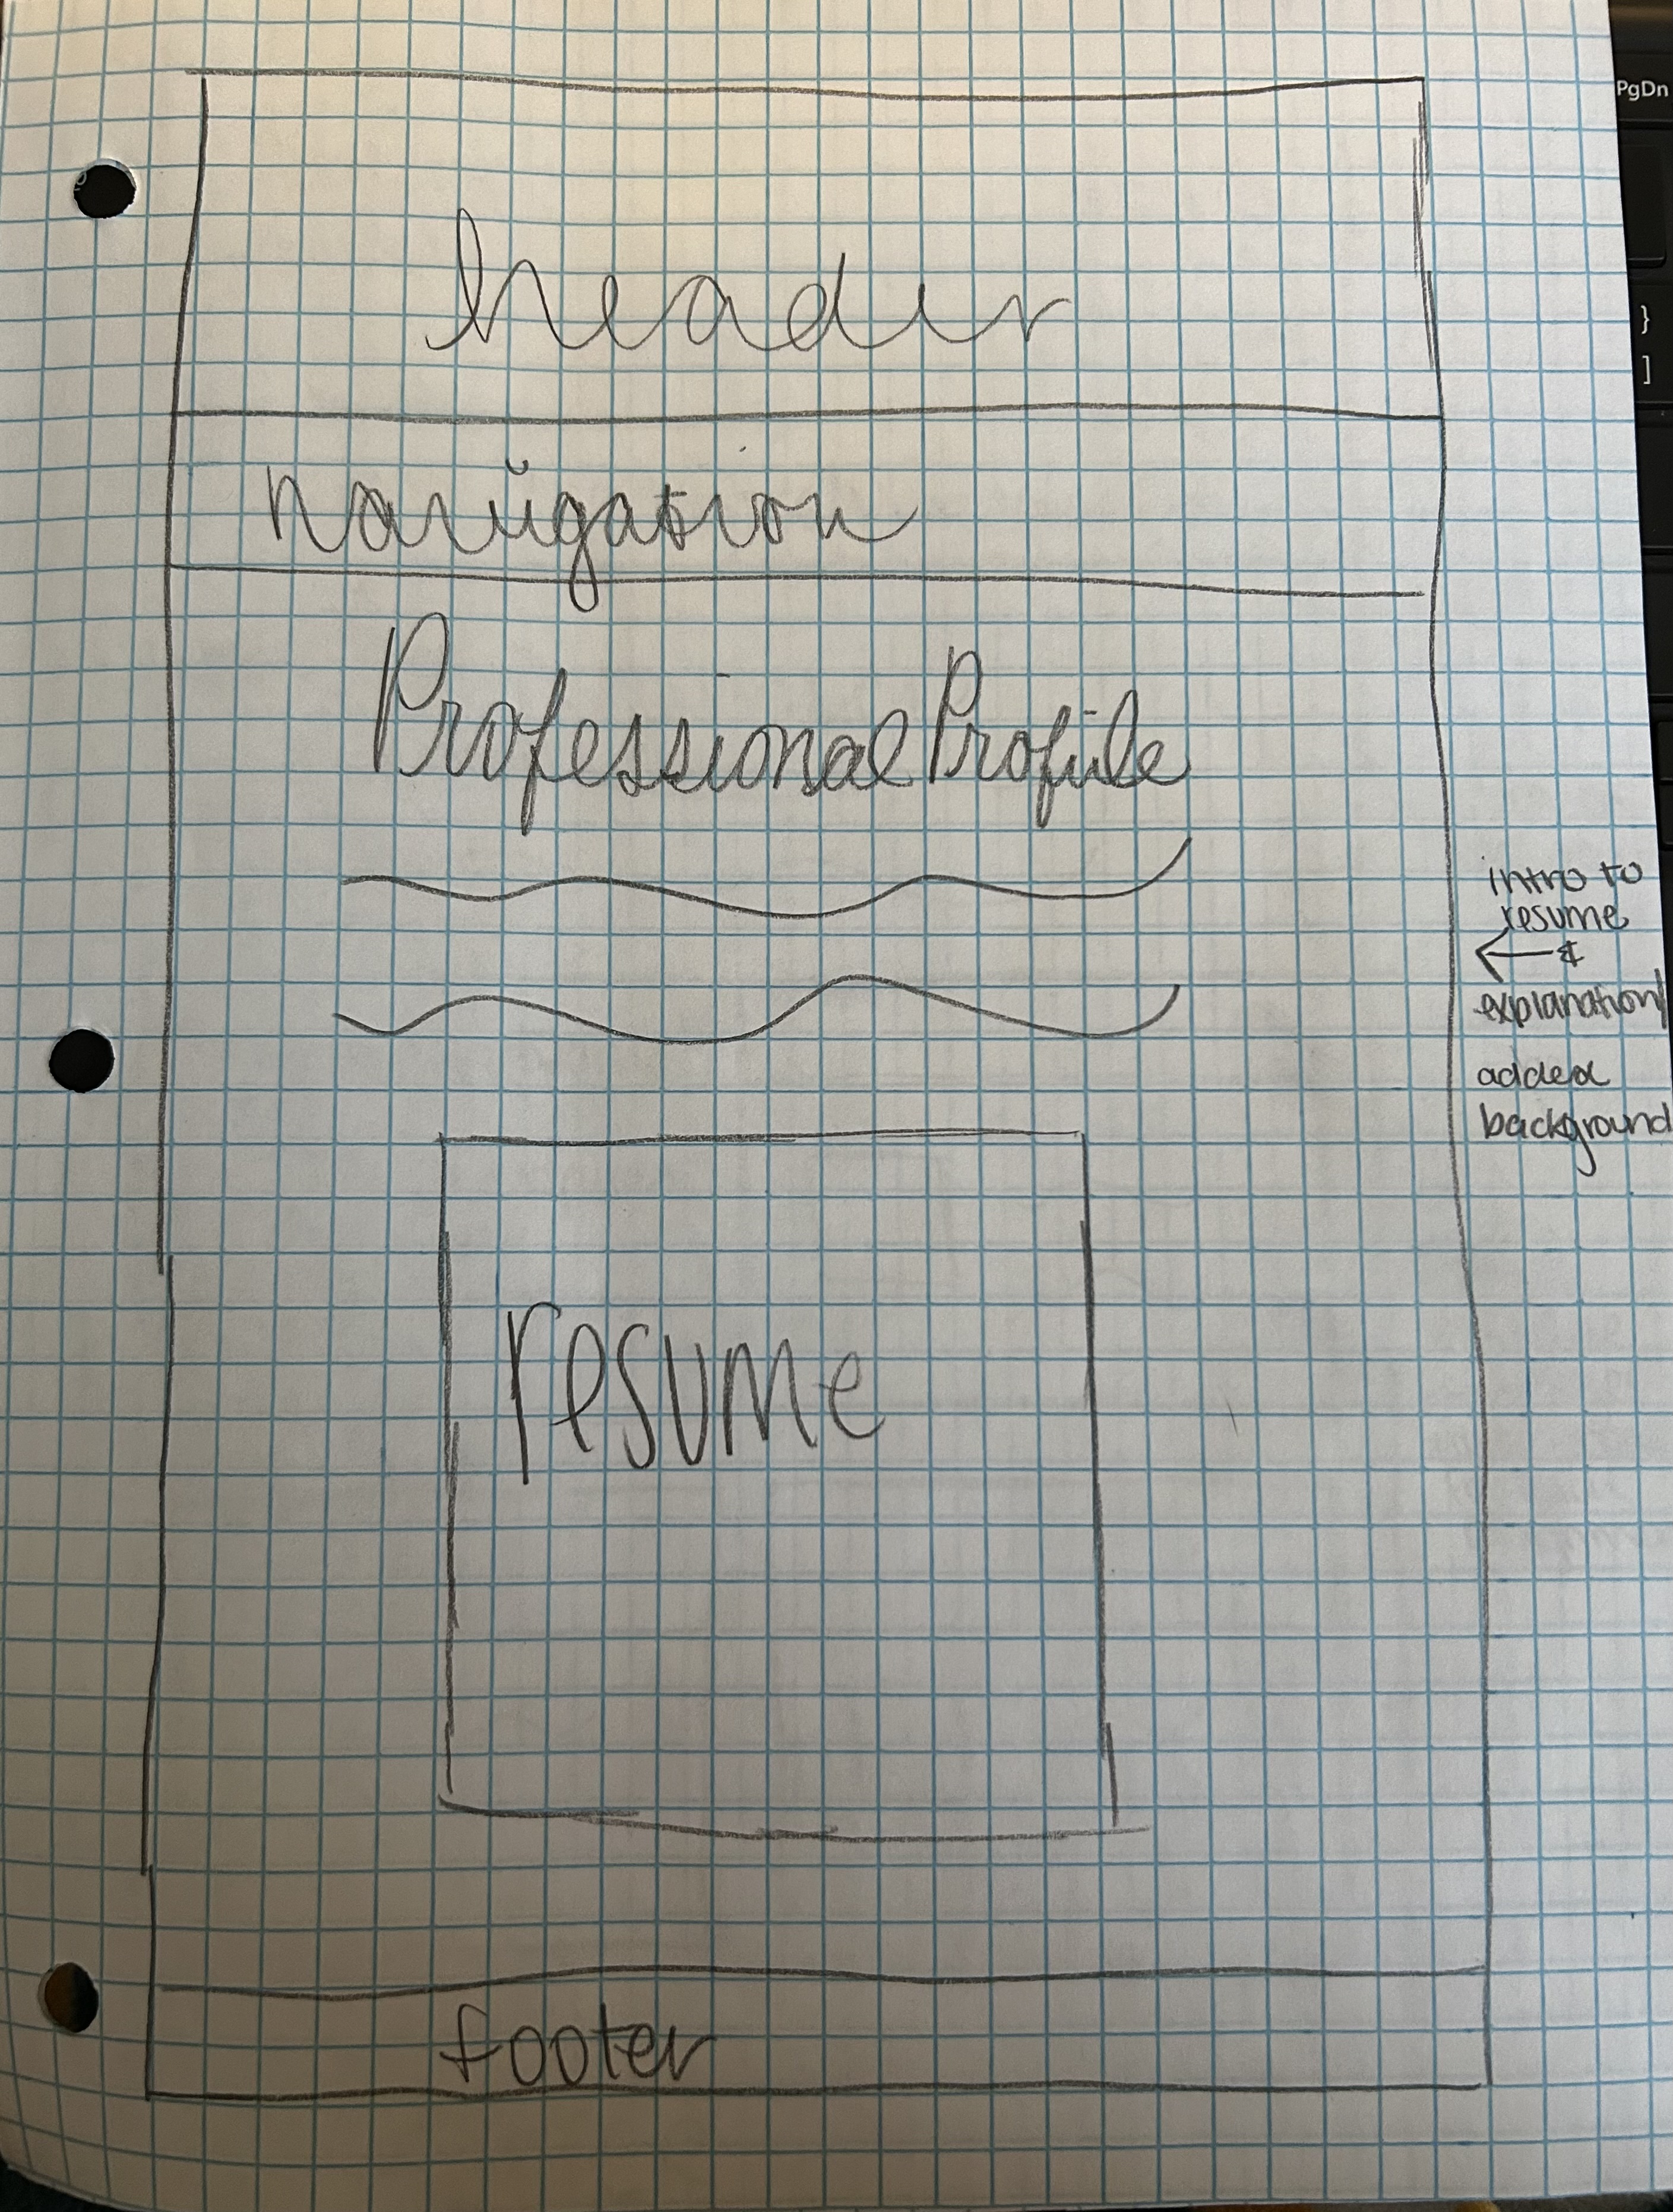 PgDn
}
]
header
navigation
Professional Profile
intro to
resume
&
explanation/
added
background
resume
footer